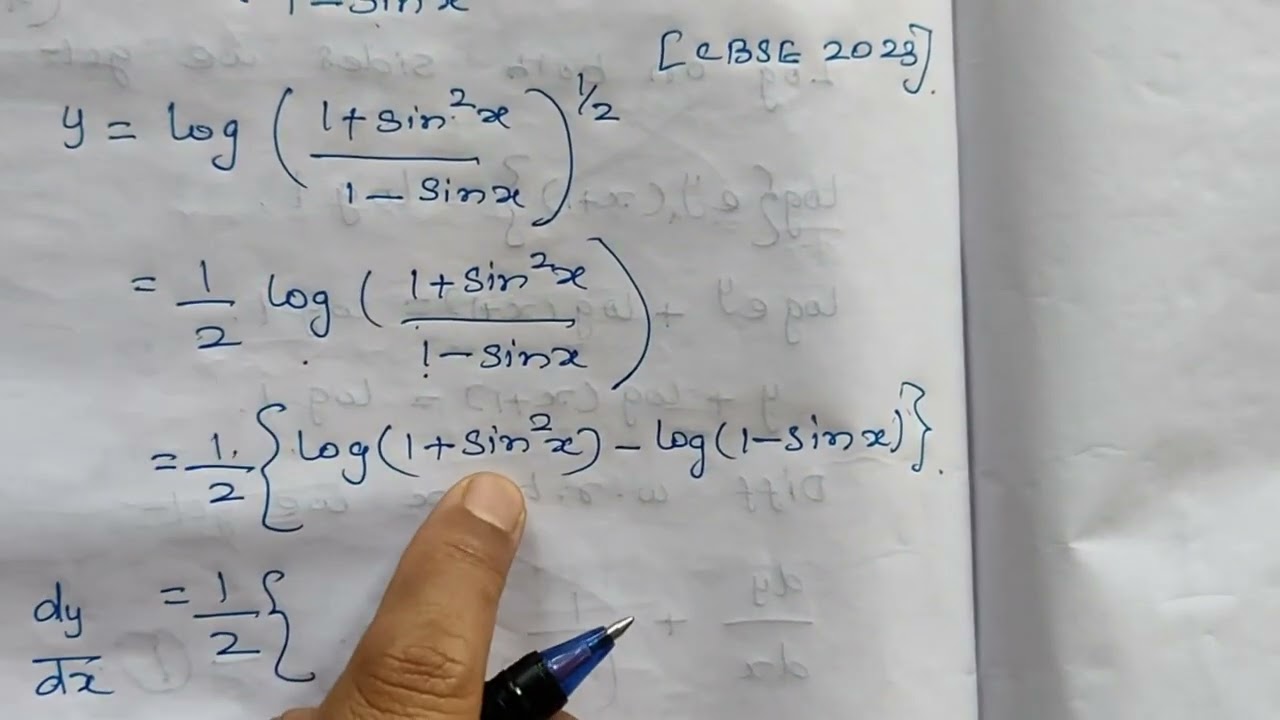 1-sinx
[CBSE 2023].
y = log ( (1+sin²x)/(1-sinx) )^1/2
= 1/2 log ( (1+sin²x)/(1-sinx) )
= 1/2 { log(1+sin²x) - log(1-sinx) }.
dy/dx = 1/2 {